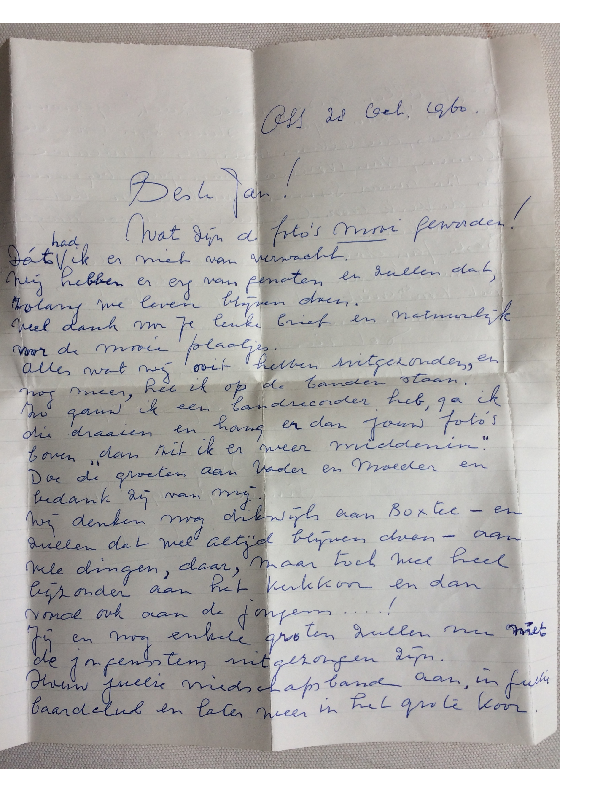 Oss 28 Oct. 1960.
Beste Jan!
Wat zijn de foto's mooi geworden!
had
Dáts ik er niet van verwacht.
Wij hebben er erg van genoten en zullen dat,
zolang we leven blijven doen.
Veel dank voor je leuke brief en natuurlijk
voor de mooie plaatjes.
Alles wat wij ooit hebben uitgezonden, en
nog meer, heb ik op de banden staan.
Zo gauw ik een bandrecorder heb, ga ik
die draaien en hang er dan jouw foto's
boven "dan zit ik er weer middenin".
Doe de groeten aan Vader en Moeder en
bedank zij van mij.
Wij denken nog dikwijls aan Boxtel – en
zullen dat wel altijd blijven doen – aan
vele dingen, daar, maar toch wel heel
bijzonder aan het kerkkoor en dan
vooral ook aan de jongens ....!
Jij en nog enkele groten zullen nu niet
de jongensstem uitgezongen zijn.
Houw jullie vriedschapsband aan, in jullie
baardclub en later weer in het grote koor.